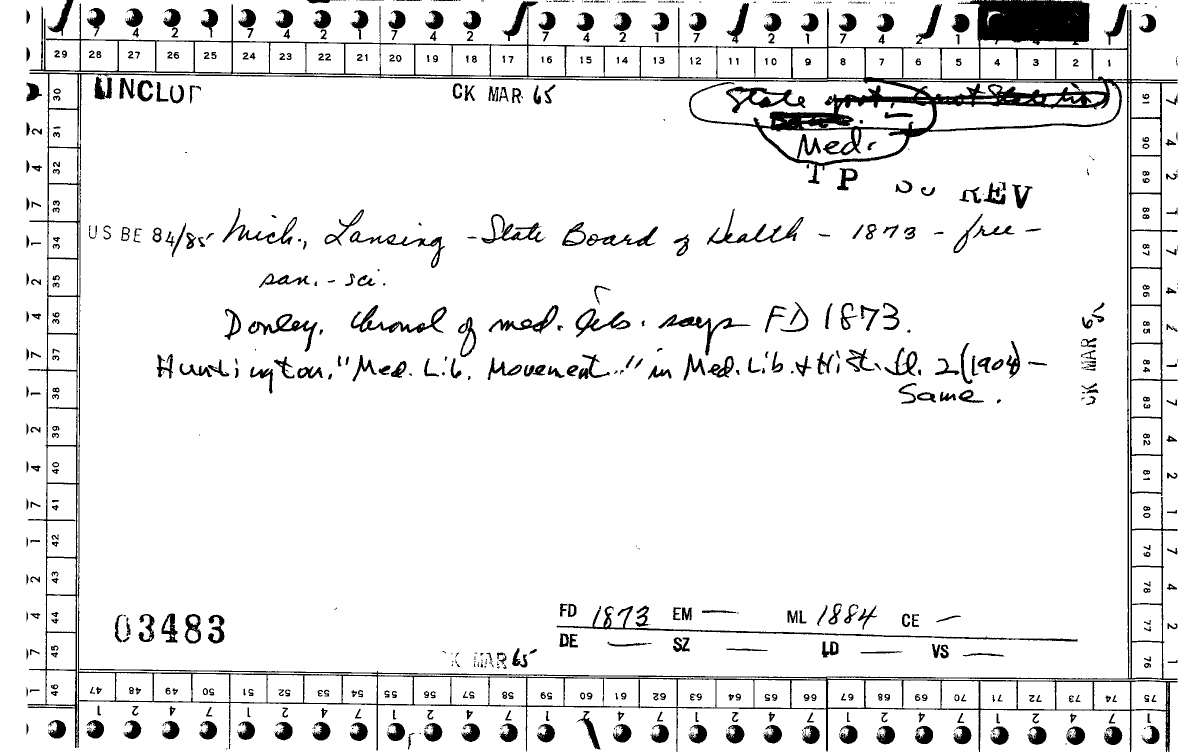 7 4 2 1 7 4 2 1 7 4 2 7 4 2 1 7 4 2 1 7 4 2 1 1
29 28 27 26 25 24 23 22 21 20 19 18 17 16 15 14 13 12 11 10 9 8 7 6 5 4 3 2 1
UNCLOT CK MAR 65 State govt.
Med.
TP REV
US BE 84/85 Mich., Lansing - State Board of Health - 1873 - free -
san. - sci.
Donley, Chronol of med. libs. says FD 1873.
Huntington, "Med. Lib. Movement..." in Med. Lib. & Hist. Jl. 2(1904) -
Same.
CK MAR 65
03483
FD 1873 EM — ML 1884 CE —
DE — SZ — LD — VS —
CK MAR 65
30 31 32 33 34 35 36 37 38 39 40 41 42 43 44 45 46
91 90 89 88 87 86 85 84 83 82 81 80 79 78 77 76
47 48 49 50 51 52 53 54 55 56 57 58 59 60 61 62 63 64 65 66 67 68 69 70 71 72 73 74 75